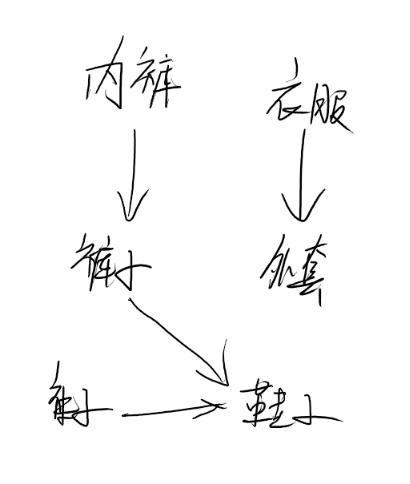 内裤 衣服
裤子 外套
袜子 鞋子